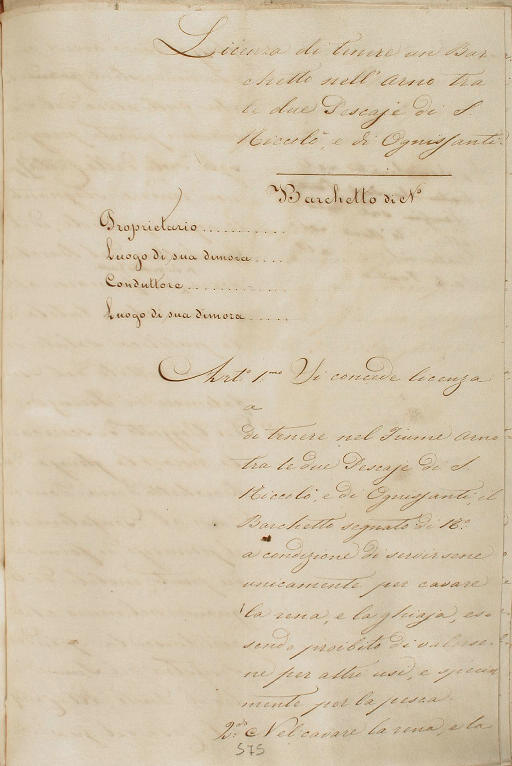 Licenza di tenere un Bar-
chetto nell'Arno tra
le due Pescaje di S.
Niccolò, e di Ognissanti.
Barchetto di N.º
Proprietario ...........
Luogo di sua dimora ....
Conduttore ............
Luogo di sua dimora .....
Art.º 1.mo Si concede licenza
a
di tenere nel Fiume Arno
tra le due Pescaje di S.
Niccolò, e di Ognissanti, il
Barchetto segnato di N.º
a condizione di servirsene
unicamente per cavare
la rena, e la ghiaja, es-
sendo proibito di valerse-
ne per altri usi, e special
mente per la pesca
2.do Nel cavare la rena, e la
575